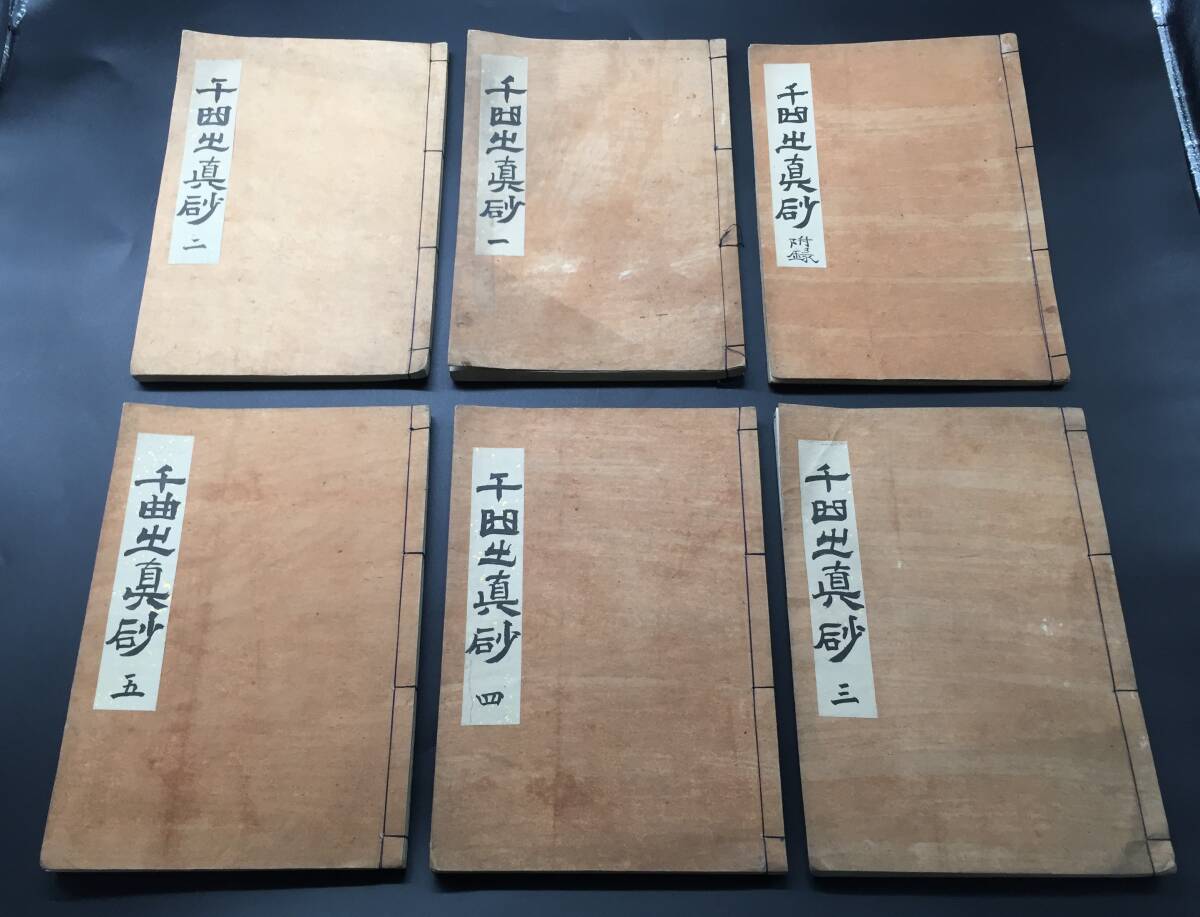 千曲之真砂 附録
千曲之真砂 一
千曲之真砂 二
千曲之真砂 三
千曲之真砂 四
千曲之真砂 五